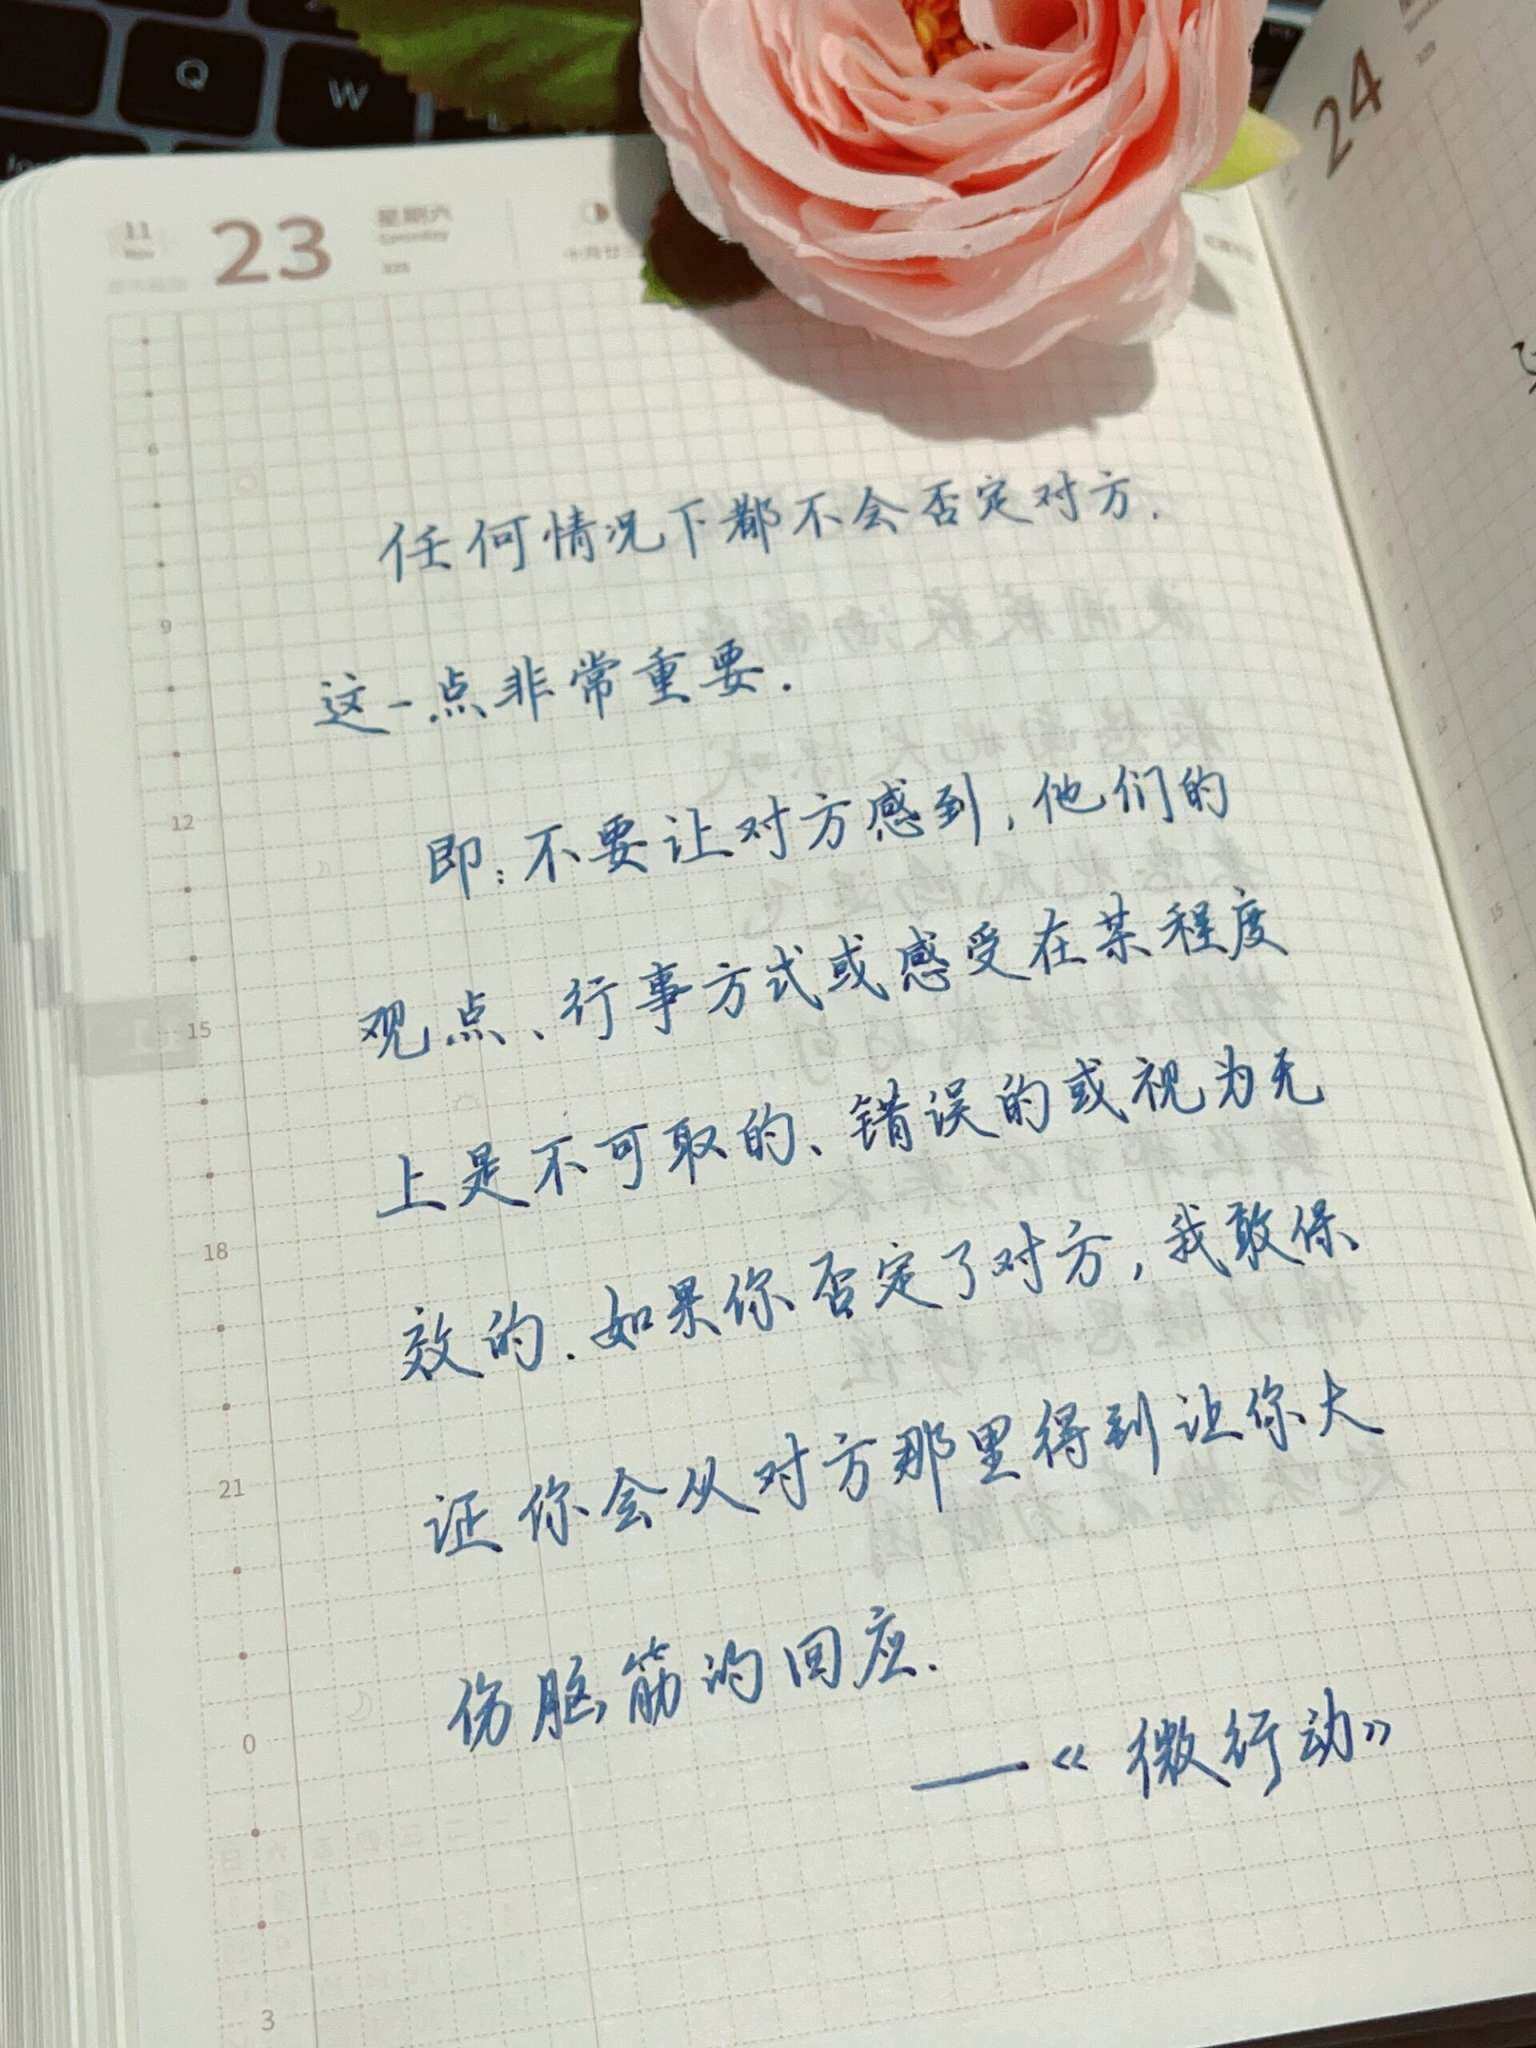 Q
W
11
Nov
23
星期六
Saturday
24
任何情况下都不会否定对方.
6
9
这一点非常重要.
12
即:不要让对方感到,他们的
观点、行事方式或感受在某程度
15
上是不可取的、错误的或视为无
18
效的.如果你否定了对方,我敢保
证你会从对方那里得到让你大
21
伤脑筋的回应.
0
——《微行动》
3